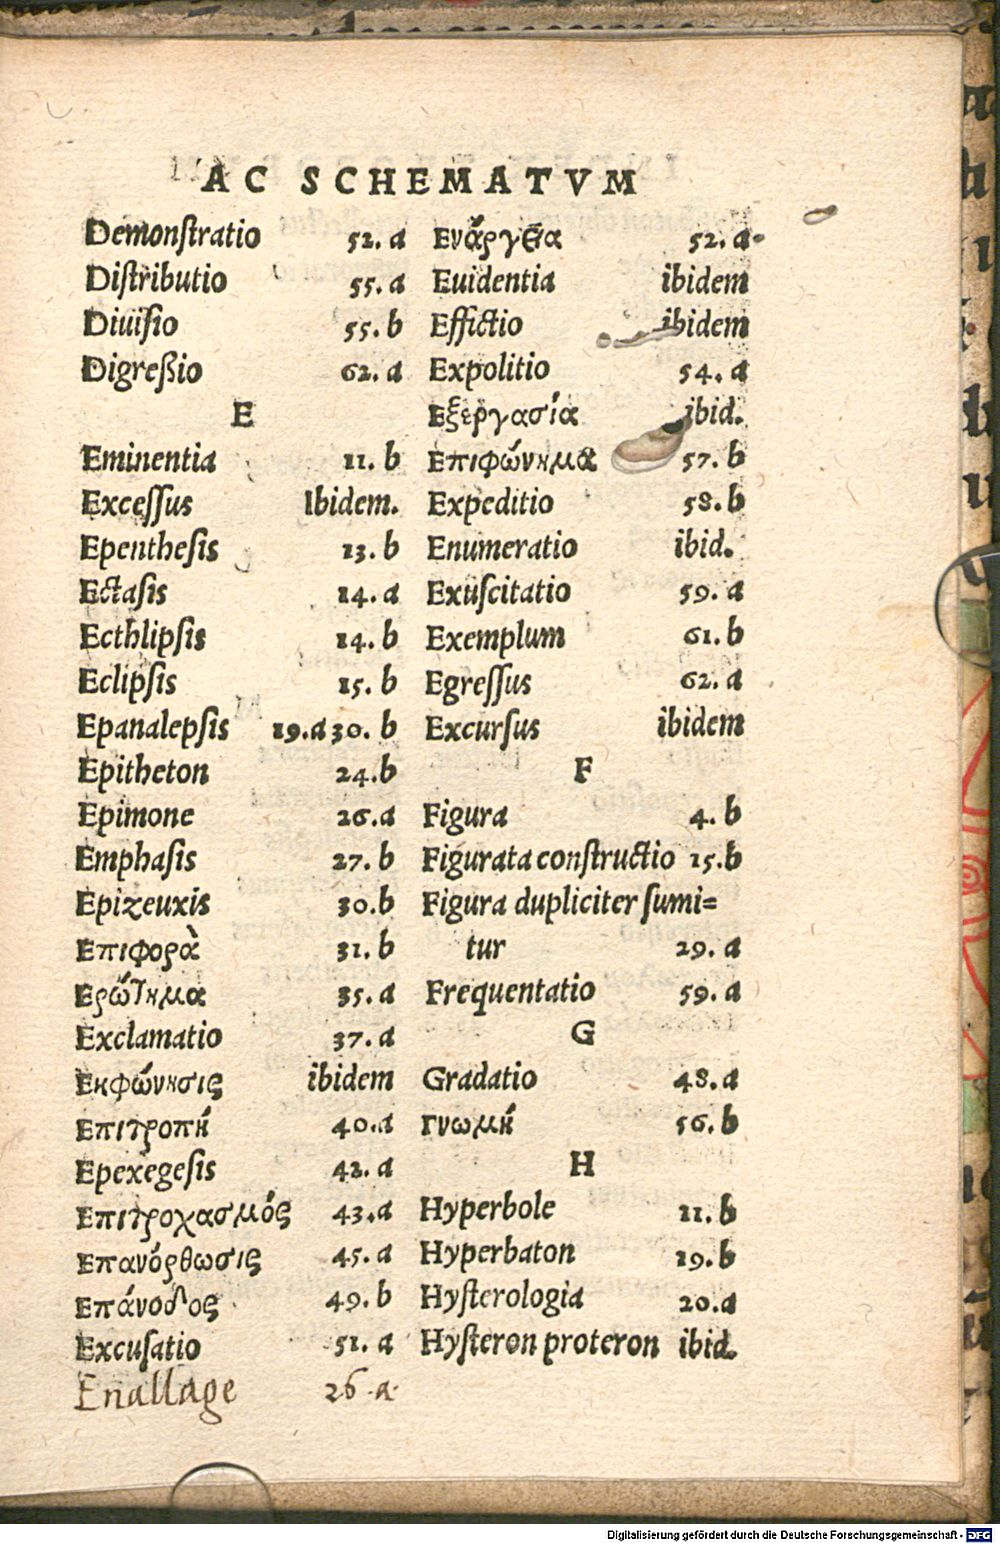 AC SCHEMATVM
Demonſtratio 52. a
Diſtributio 55. a
Diuiſio 55. b
Digreßio 62. a
E
Eminentia 11. b
Exceſſus Ibidem.
Epentheſis 13. b
Ectaſis 14. a
Ecthlipſis 14. b
Eclipſis 15. b
Epanalepſis 19.a 30. b
Epitheton 24.b
Epimone 26.a
Emphaſis 27. b
Epizeuxis 30.b
Επιφορὰ 31. b
Ερώτημα 35. a
Exclamatio 37. a
Εκφώνησις ibidem
Επιτροπή 40.a
Epexegeſis 42. a
Επιτροχασμός 43.a
Επανόρθωσις 45. a
Επάνοδος 49. b
Excuſatio 51. a
Enallage 26.a.
Ενάργεια 52. a
Euidentia ibidem
Effictio ibidem
Expolitio 54. a
Εξεργασία ibid.
Επιφώνημα 57. b
Expeditio 58. b
Enumeratio ibid.
Exuſcitatio 59. a
Exemplum 61. b
Egreſſus 62. a
Excurſus ibidem
F
Figura 4. b
Figurata conſtructio 15.b
Figura dupliciter ſumi=
tur 29. a
Frequentatio 59. a
G
Gradatio 48. a
Γνωμή 56. b
H
Hyperbole 11. b
Hyperbaton 19. b
Hyſterologia 20.a
Hyſteron proteron ibid.
Digitalisierung gefördert durch die Deutsche Forschungsgemeinschaft - DFG